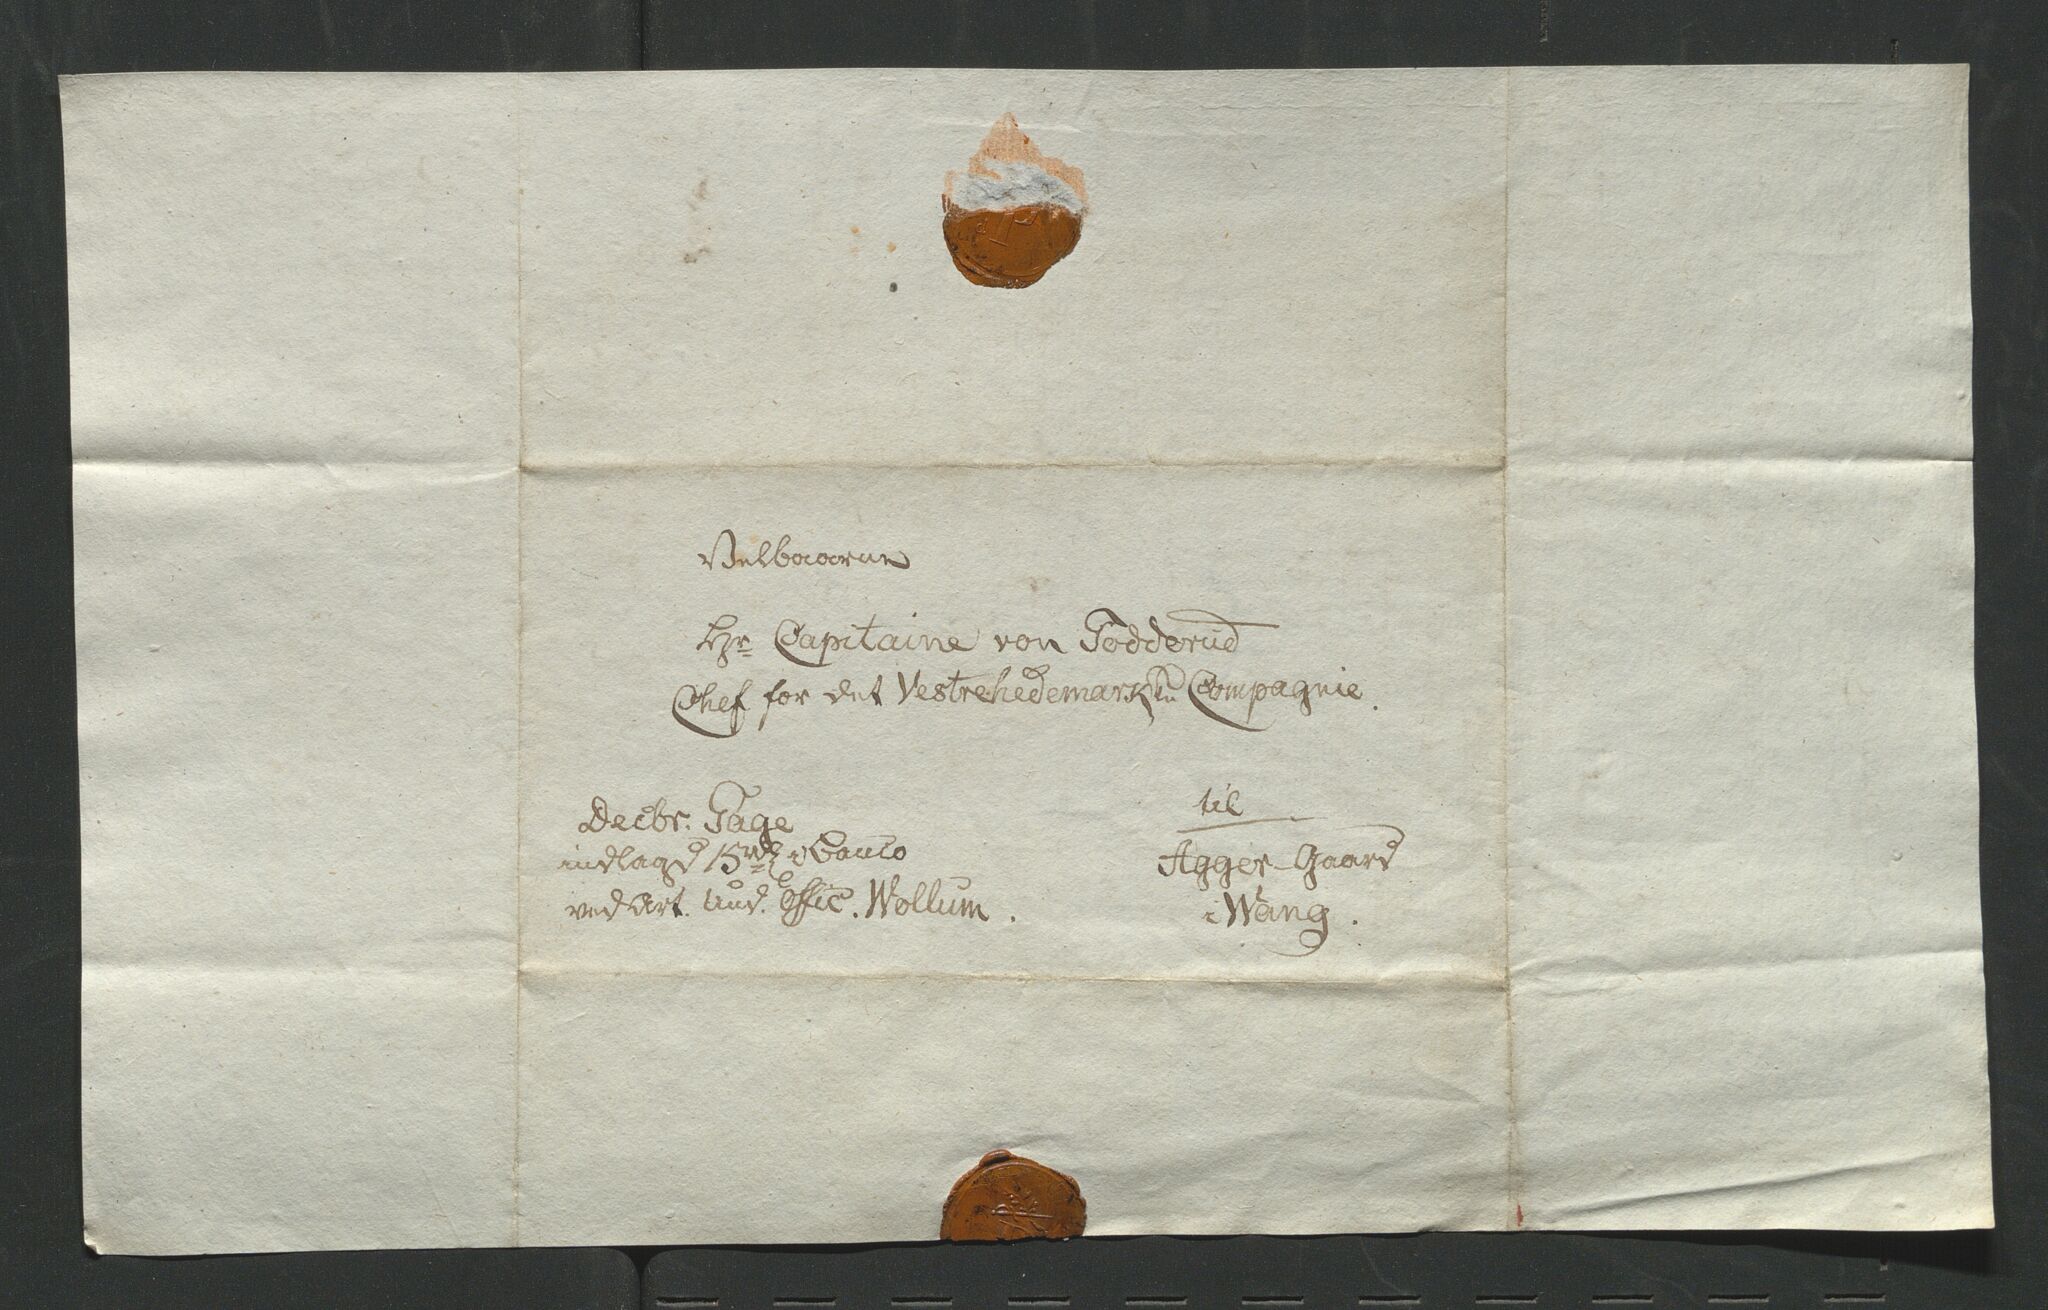 Velbaarne
Hr Capitaine von Todderud
Chef for det Vestrehedemarkske Compagnie.
Decbr. Tage
indlagd 15 i Banco
ved Art. Und. Offic. Wollum.
til
Agger-Gaard
i Wang.